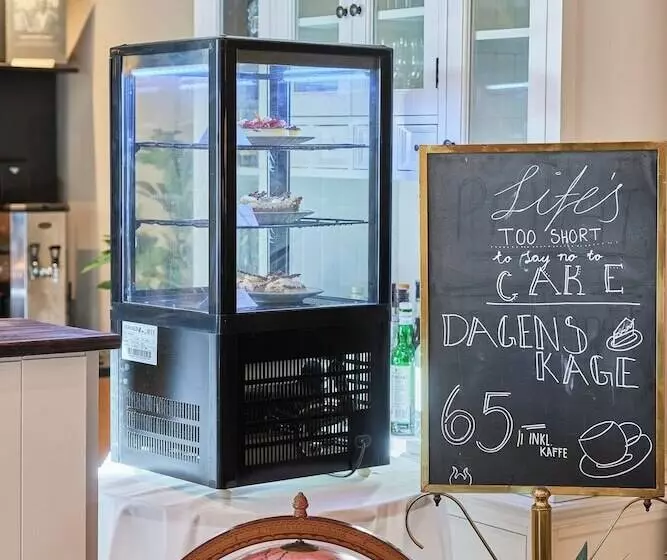 Life's
TOO SHORT
to say no to
CAKE
DAGENS
KAGE
65,-
INKL
KAFFE